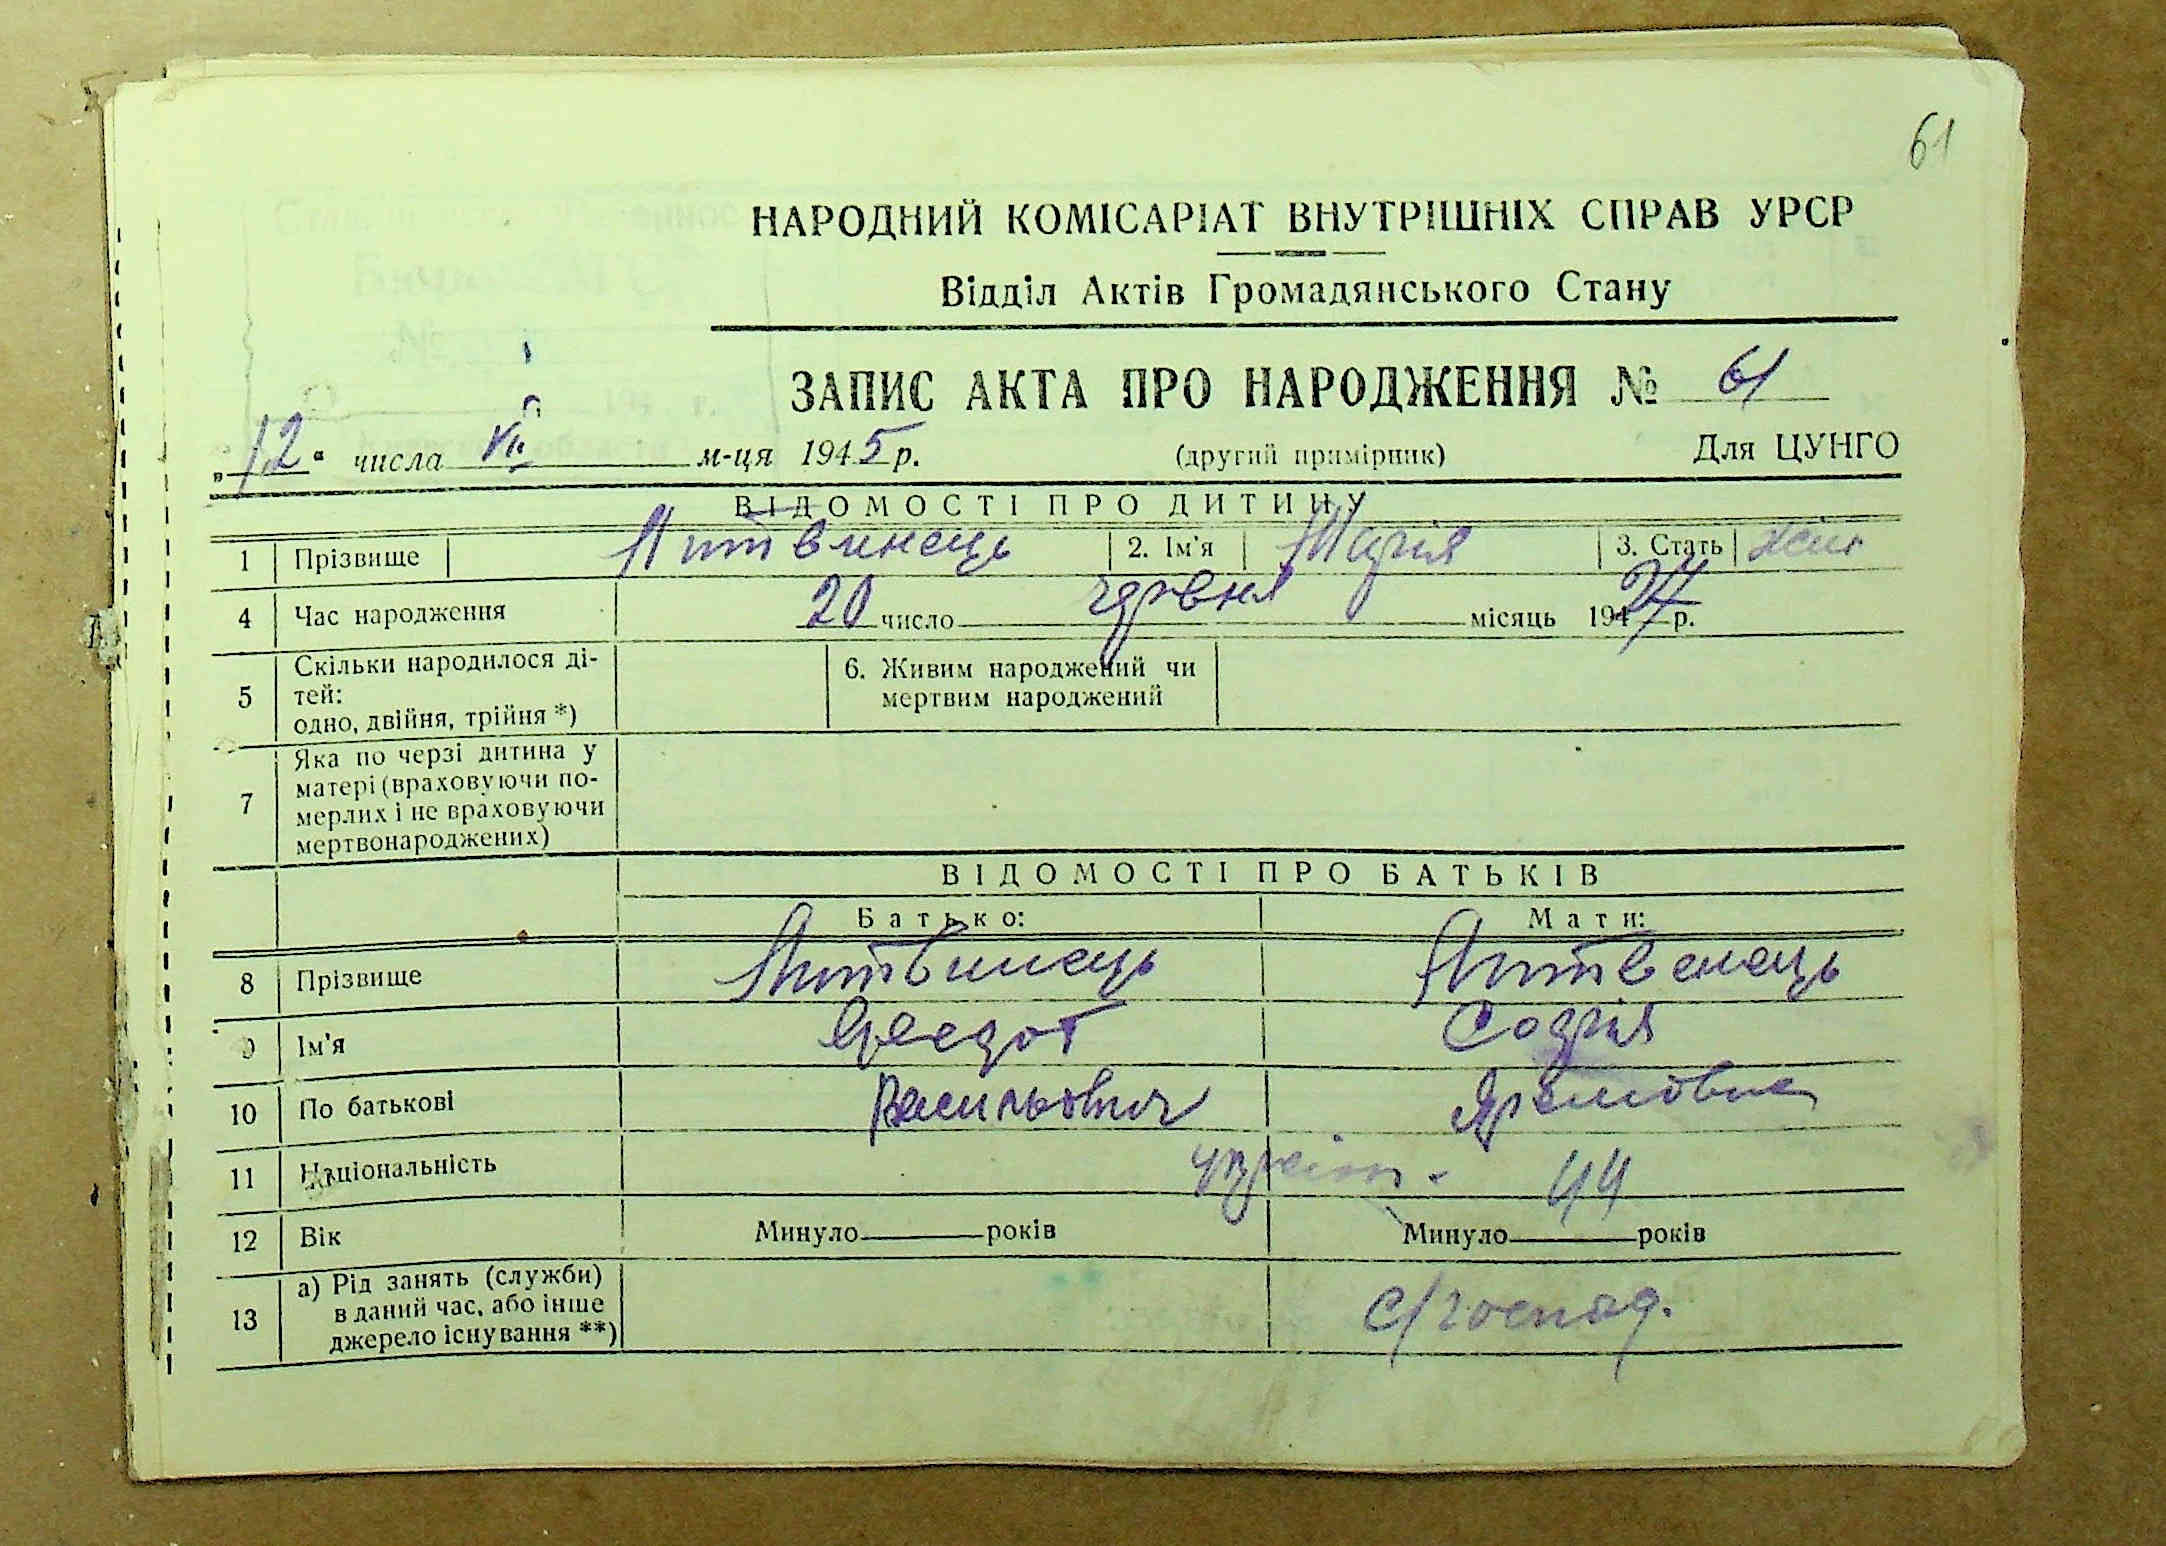 61
НАРОДНИЙ КОМІСАРІАТ ВНУТРІШНІХ СПРАВ УРСР
Відділ Актів Громадянського Стану
ЗАПИС АКТА ПРО НАРОДЖЕННЯ № 61
„12“ числа VII м-ця 1945 р. (другий примірник) Для ЦУНГО
ВІДОМОСТІ ПРО ДИТИНУ
1 Прізвище Литвинець 2. Ім'я Марія 3. Стать жін
4 Час народження 20 число червня місяць 1924 р.
5 Скільки народилося ді-
тей:
одно, двійня, трійня *)
6. Живим народжений чи
мертвим народжений
7 Яка по черзі дитина у
матері (враховуючи по-
мерлих і не враховуючи
мертвонароджених)
ВІДОМОСТІ ПРО БАТЬКІВ
Батько: Мати:
8 Прізвище Литвинець Литвенець
9 Ім'я Федот Софія
10 По батькові Васильович
11 Національність 44
12 Вік Минуло років Минуло років
13 а) Рід занять (служби)
в даний час, або інше
джерело існування **)
с/господ.